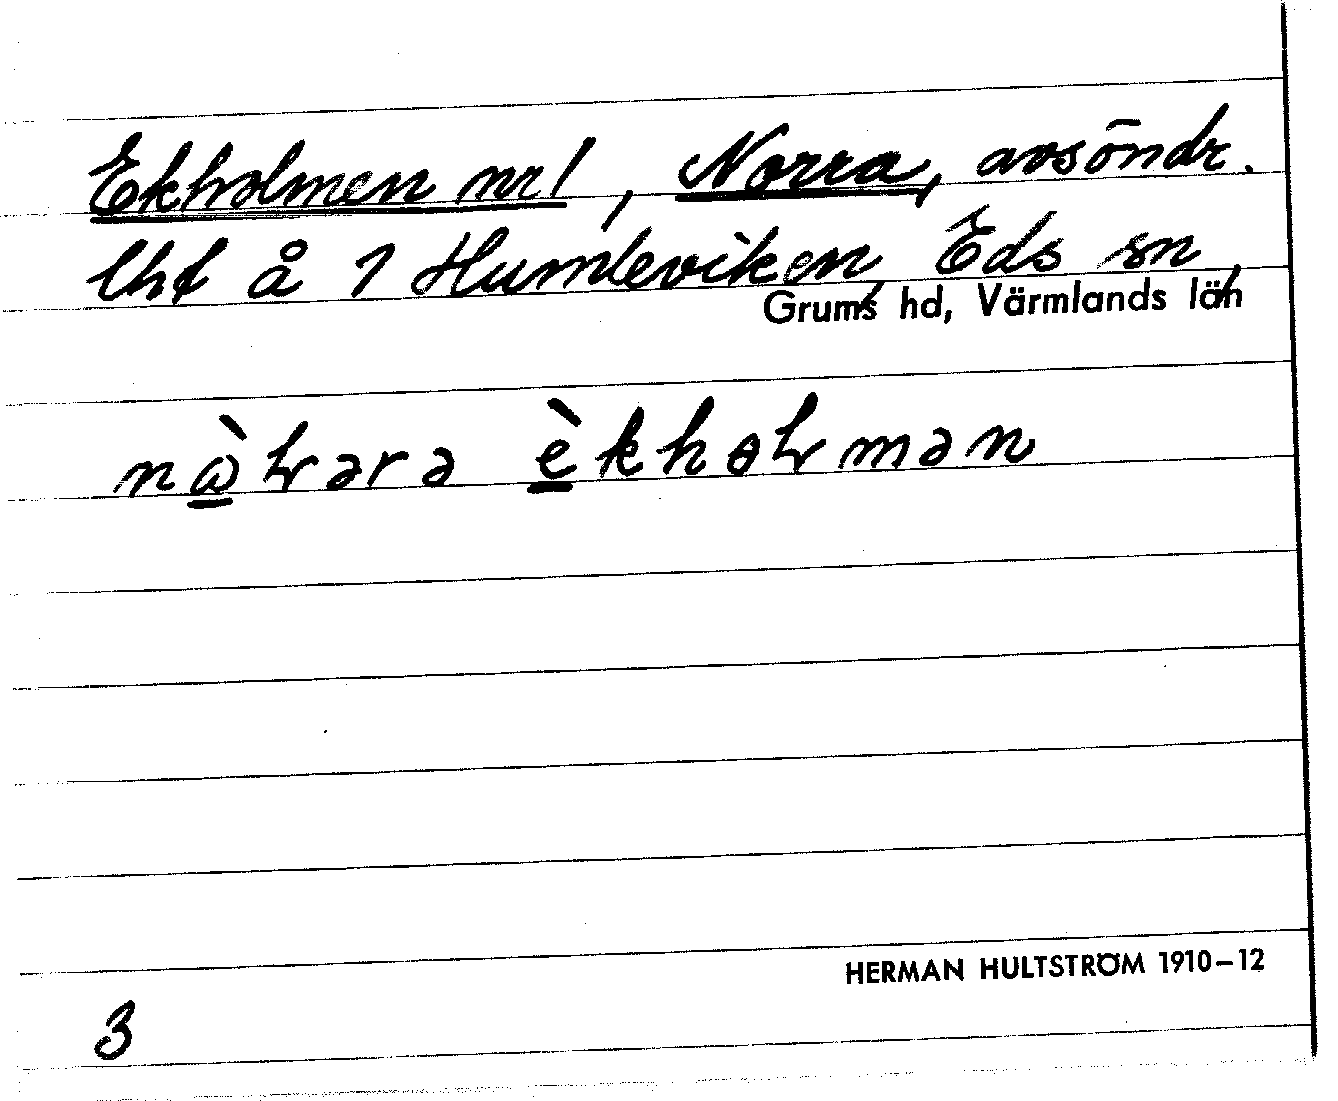 Ekholmen nr 1, Norra, avsöndr.
lht å 1 Humleviken Eds sn,
Grums hd, Värmlands län
HERMAN HULTSTRÖM 1910–12
3